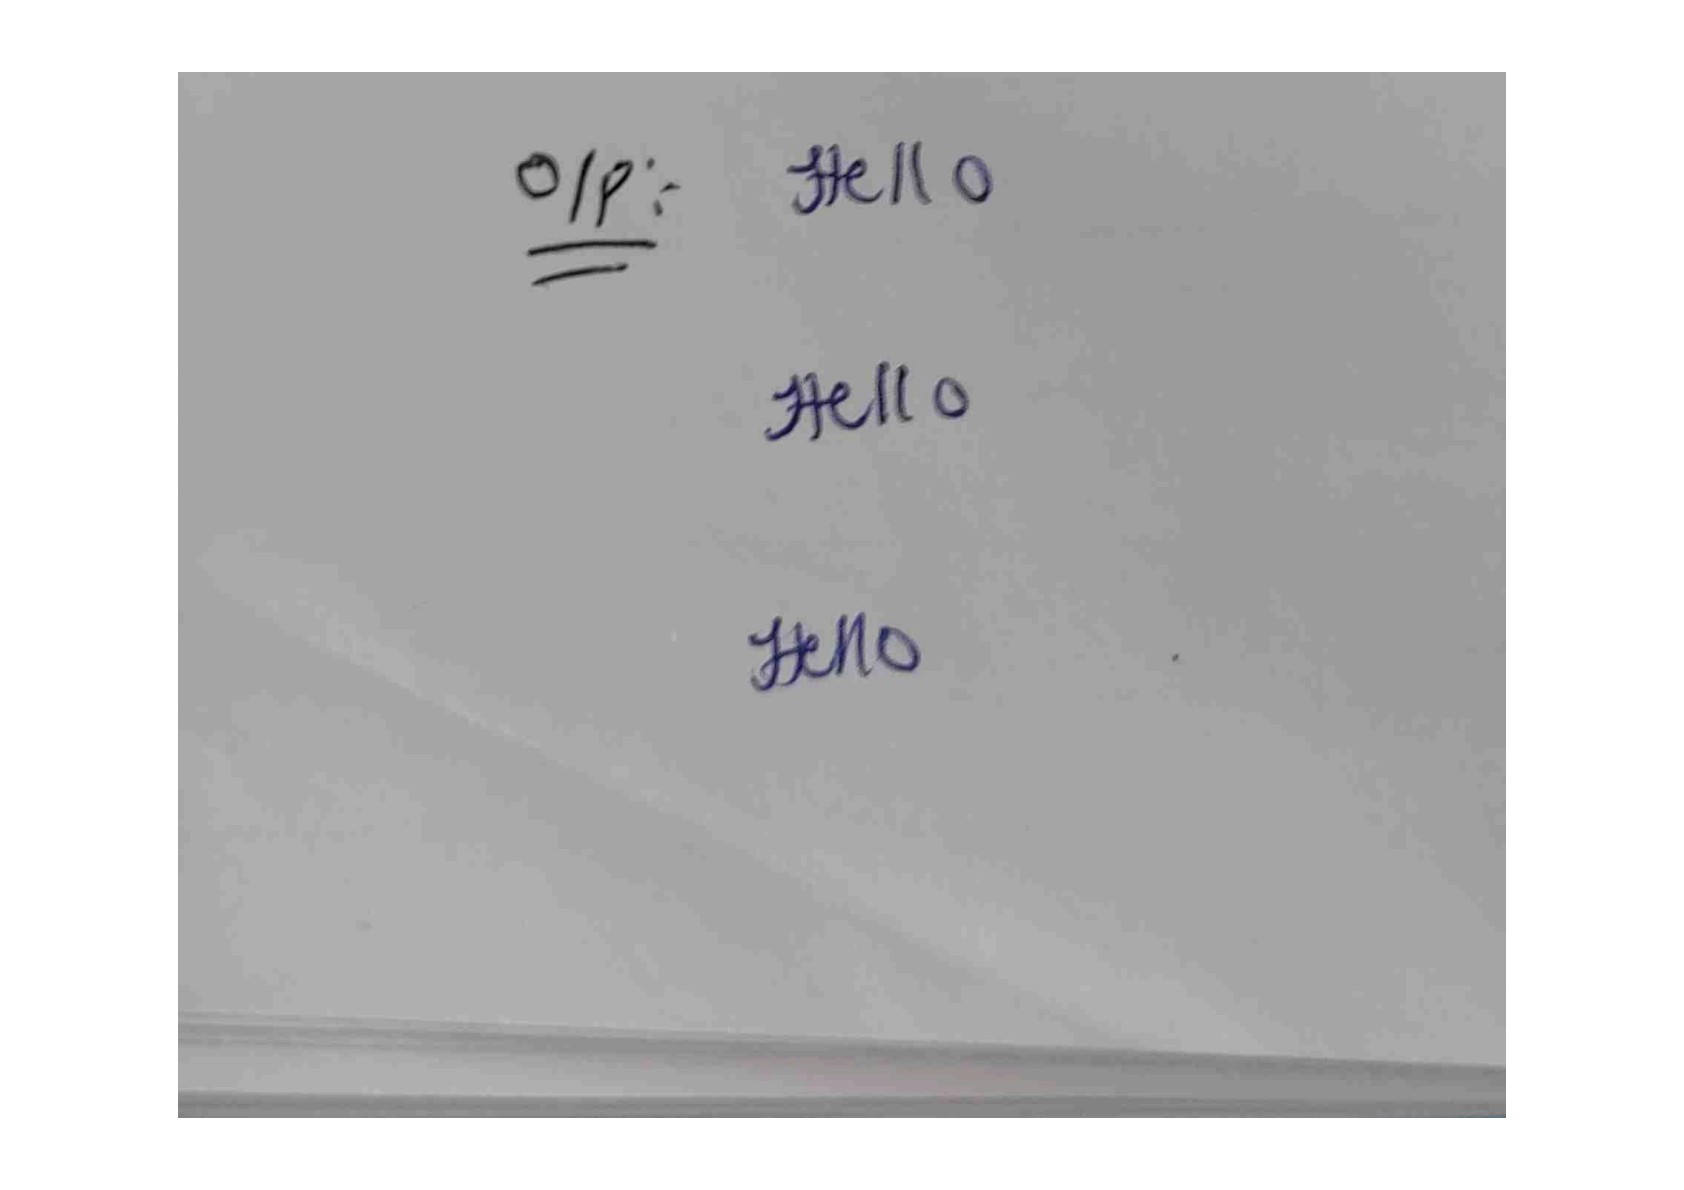 O/P:- Hello
Hello
Hello